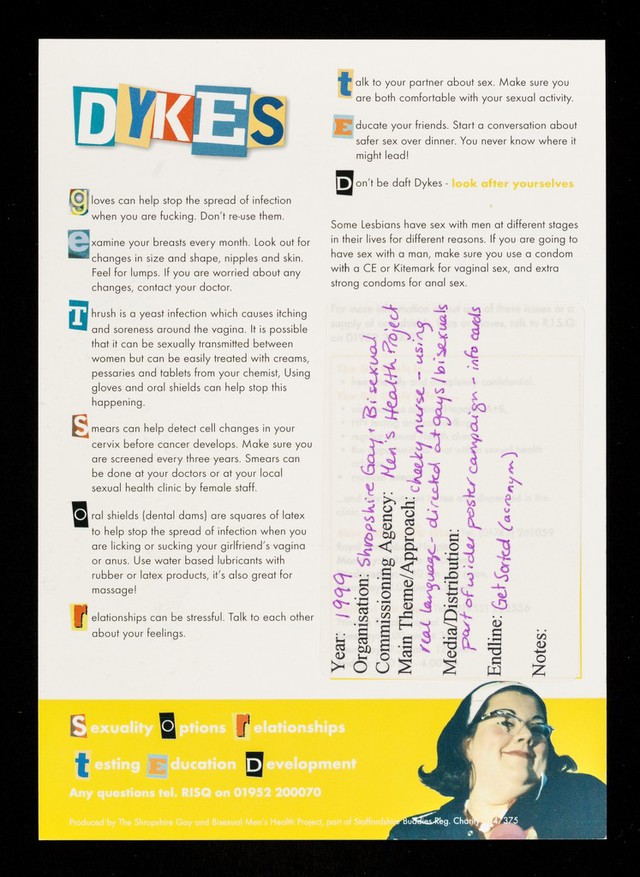 DYKES
gloves can help stop the spread of infection
when you are fucking. Don't re-use them.
examine your breasts every month. Look out for
changes in size and shape, nipples and skin.
Feel for lumps. If you are worried about any
changes, contact your doctor.
Thrush is a yeast infection which causes itching
and soreness around the vagina. It is possible
that it can be sexually transmitted between
women but can be easily treated with creams,
pessaries and tablets from your chemist, Using
gloves and oral shields can help stop this
happening.
Smears can help detect cell changes in your
cervix before cancer develops. Make sure you
are screened every three years. Smears can
be done at your doctors or at your local
sexual health clinic by female staff.
Oral shields (dental dams) are squares of latex
to help stop the spread of infection when you
are licking or sucking your girlfriend's vagina
or anus. Use water based lubricants with
rubber or latex products, it's also great for
massage!
relationships can be stressful. Talk to each other
about your feelings.
talk to your partner about sex. Make sure you
are both comfortable with your sexual activity.
Educate your friends. Start a conversation about
safer sex over dinner. You never know where it
might lead!
Don't be daft Dykes - look after yourselves
Some Lesbians have sex with men at different stages
in their lives for different reasons. If you are going to
have sex with a man, make sure you use a condom
with a CE or Kitemark for vaginal sex, and extra
strong condoms for anal sex.
Year: 1999
Organisation: Shropshire Gay & Bisexual
Commissioning Agency: Men's Health Project
Main Theme/Approach: cheeky nurse - using
real language - directed at gays/bisexuals
Media/Distribution:
part of wider poster campaign - info cards
Endline: Get Sorted (acronym)
Notes:
Sexuality Options relationships
testing Education Development
Any questions tel. RISQ on 01952 200070
Produced by The Shropshire Gay and Bisexual Men's Health Project, part of Staffordshire Buddies Reg. Charity 47375